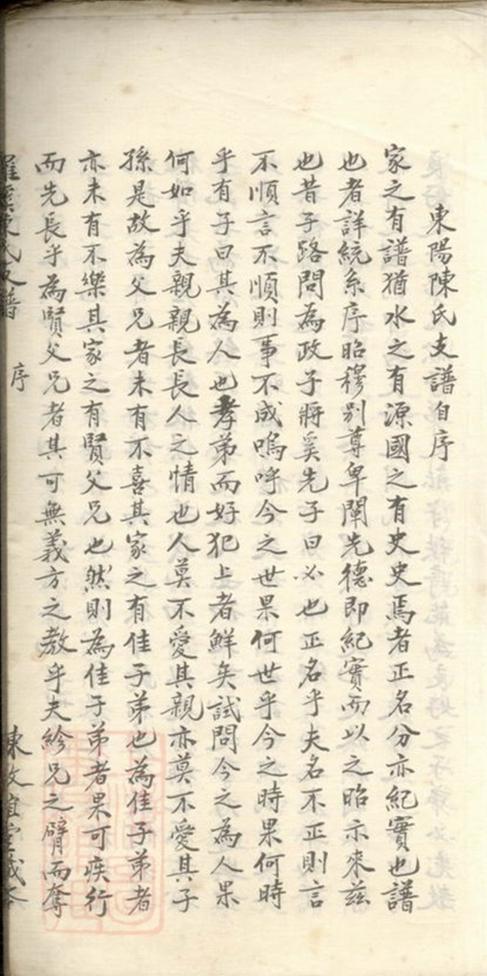 東陽陳氏支譜自序
家之有譜猶水之有源國之有史史焉者正名分亦紀實也譜
也者詳統系序昭穆別尊卑闡先德即紀實而以之昭示來茲
也昔子路問為政子將奚先子曰必也正名乎夫名不正則言
不順言不順則事不成嗚呼今之世果何世乎今之時果何時
乎有子曰其為人也孝弟而好犯上者鮮矣試問今之為人果
何如乎夫親親長長人之情也人莫不愛其親亦莫不愛其子
孫是故為父兄者未有不喜其家之有佳子弟也為佳子弟者
亦未有不樂其家之有賢父兄也然則為佳子弟者果可疾行
而先長乎為賢父兄者其可無義方之教乎夫紾兄之臂而奪
氏支譜 序